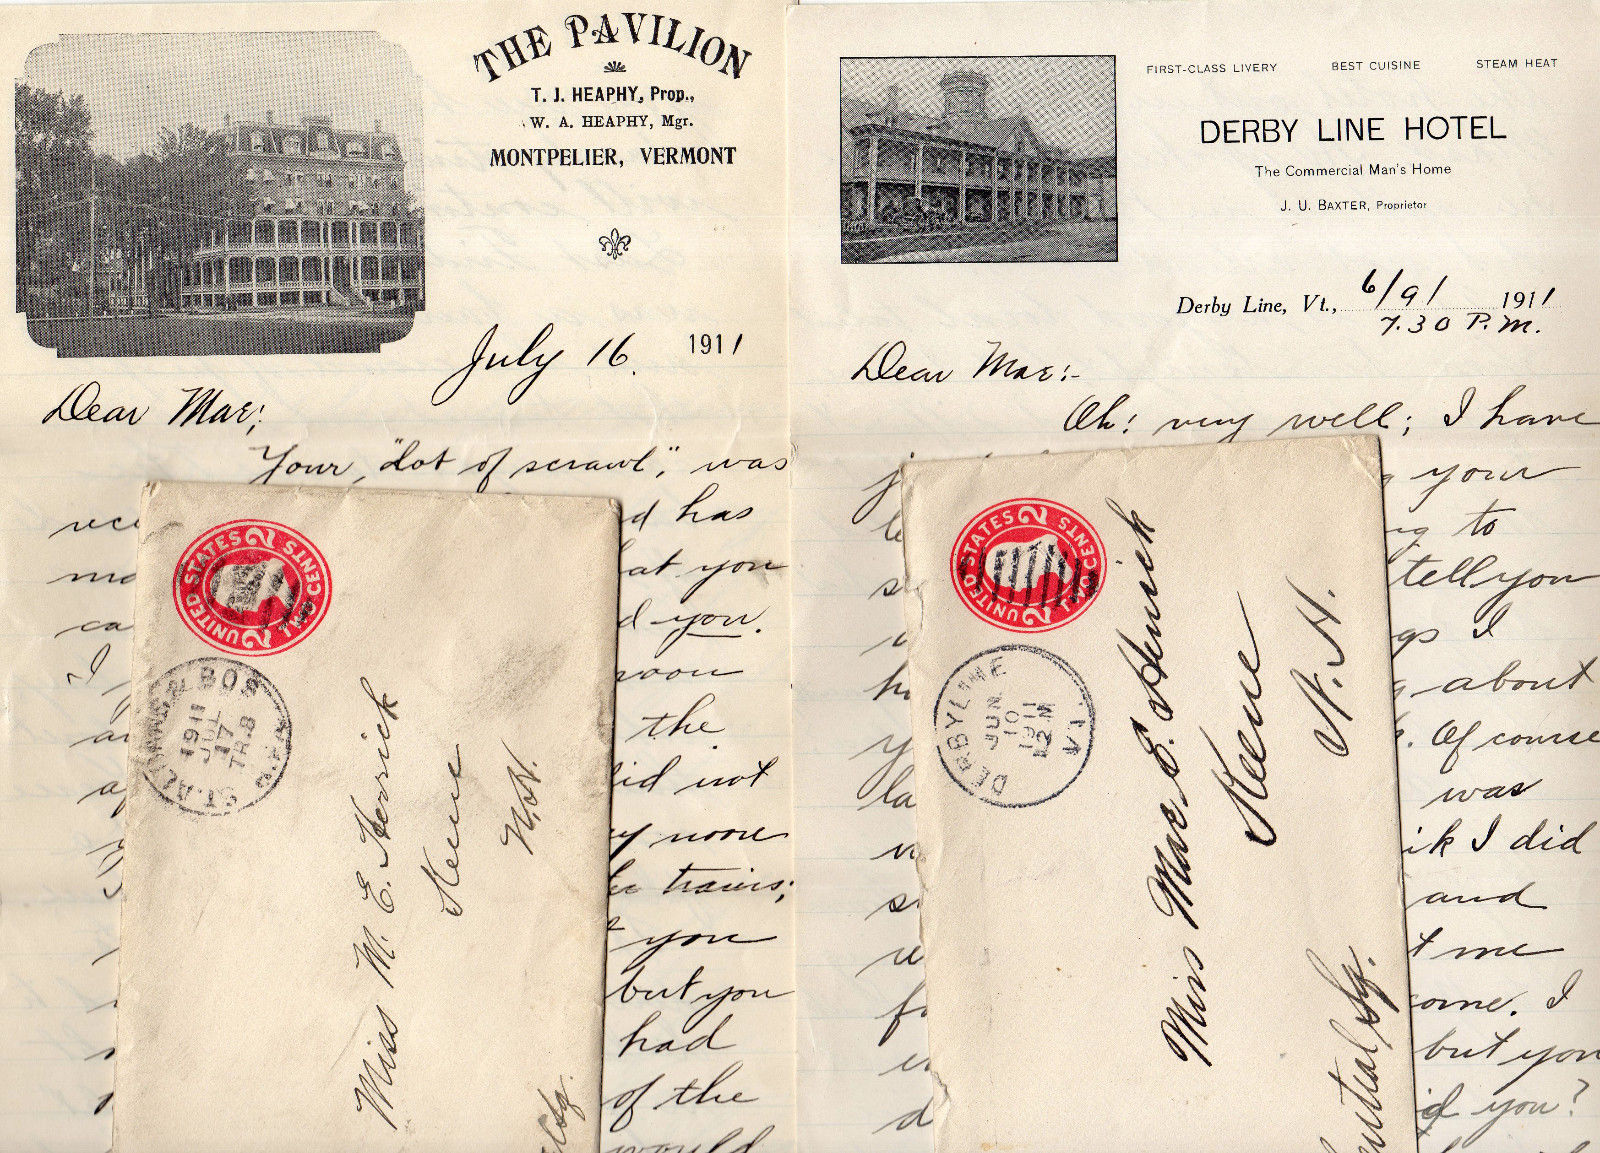 THE PAVILION
T. J. HEAPHY, Prop.,
W. A. HEAPHY, Mgr.
MONTPELIER, VERMONT
July 16. 1911
Dear Mae;
Your, "lot of scrawl", was
d has
at you
d you.
I
soon
the
did not
noon
trains;
you
but you
had
of the
would
UNITED STATES 2 CENTS TWO 2
ST. ALBANS & BOS
1911
JUL
17
TR. 8
R.P.O.
Miss M. E. Herrick
Keene
N.H.
Bldg.
FIRST-CLASS LIVERY BEST CUISINE STEAM HEAT
DERBY LINE HOTEL
The Commercial Man's Home
J. U. BAXTER, Proprietor
Derby Line, Vt., 6/9/ 1911
7.30 P.M.
Dear Mae:-
Oh! very well; I have
your
to
tell you
gs I
about
Of course
was
ik I did
and
t me
ome. I
but you
id you?
UNITED STATES 2 CENTS TWO 2
DERBY LINE
JUN
10
1911
12 M
VT.
Miss Mae E. Herrick
Keene
N. H.
ential Sq.